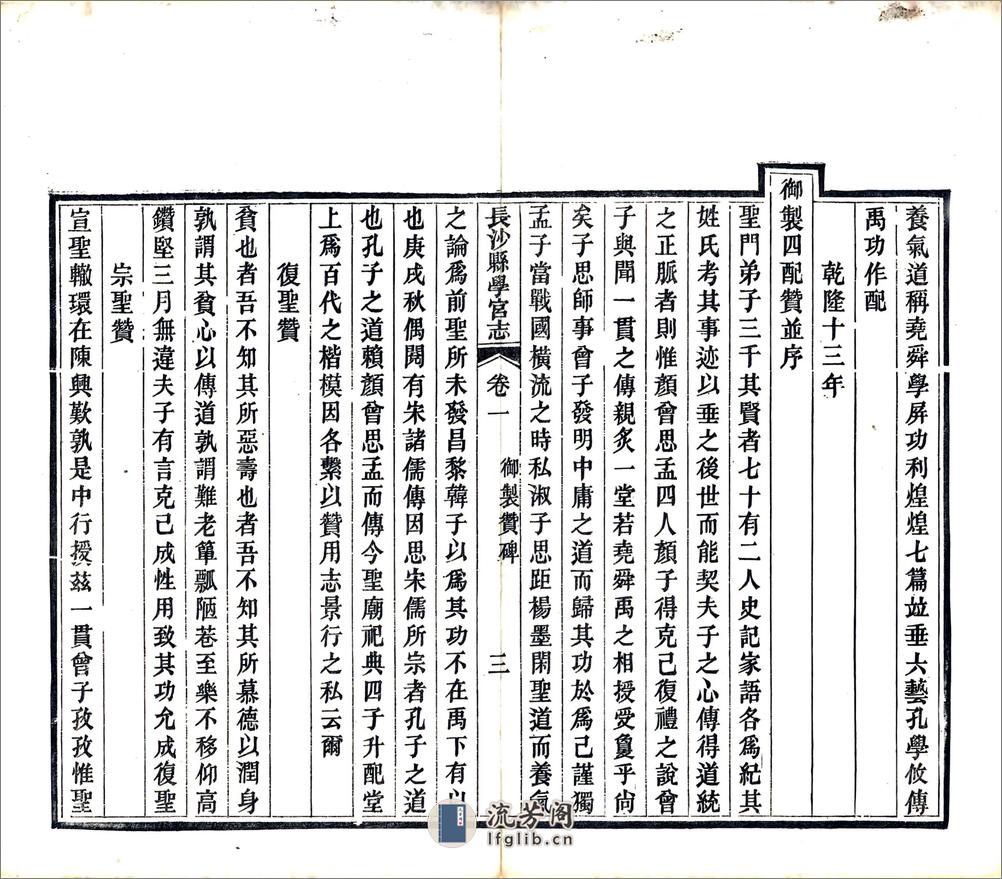 養氣道稱堯舜學屏功利煌煌七篇竝垂六藝孔學攸傳
禹功作配
乾隆十三年
御製四配贊並序
聖門弟子三千其賢者七十有二人史記家語各爲紀其
姓氏考其事迹以垂之後世而能契夫子之心傳得道統
之正脈者則惟顏曾思孟四人顏子得克己復禮之說曾
子與聞一貫之傳親炙一堂若堯舜禹之相授受敻乎尙
矣子思師事曾子發明中庸之道而歸其功於爲己謹獨
孟子當戰國橫流之時私淑子思距楊墨閑聖道而養氣
長沙縣學宮志 卷一 御製贊碑 三
之論爲前聖所未發昌黎韓子以爲其功不在禹下有以
也庚戌秋偶閱有宋諸儒傳因思宋儒所宗者孔子之道
也孔子之道賴顏曾思孟而傳今聖廟祀典四子升配堂
上爲百代之楷模因各繫以贊用志景行之私云爾
復聖贊
貧也者吾不知其所惡壽也者吾不知其所慕德以潤身
孰謂其貧心以傳道孰謂難老簞瓢陋巷至樂不移仰高
鑽堅三月無違夫子有言克己成性用致其功允成復聖
宗聖贊
宣聖轍環在陳興歎孰是中行授茲一貫曾子孜孜惟聖
流芳阁
lfglib.cn